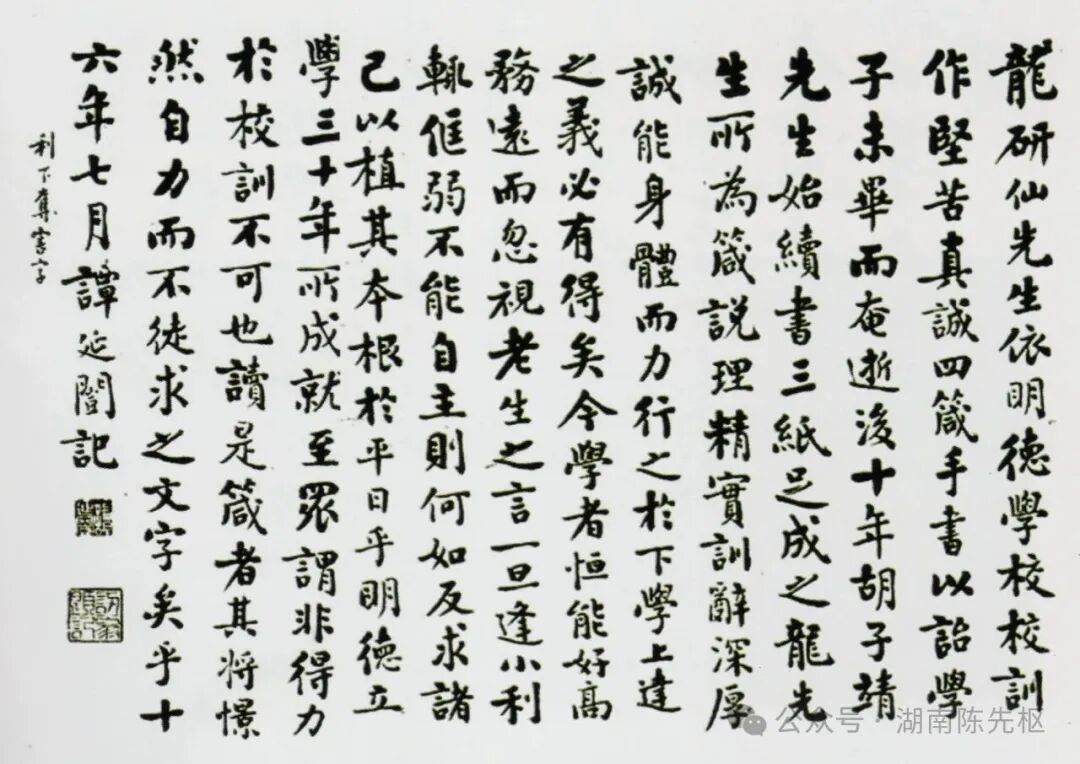 龍研仙先生依明德學校校訓
作堅苦真誠四箴手書以詔學
子未畢而奄逝後十年胡子靖
先生始續書三紙足成之龍先
生所為箴說理精實訓辭深厚
誠能身體而力行之於下學上達
之義必有得矣今學者恒能好高
務遠而忽視老生之言一旦逢小利
輒恇弱不能自主則何如反求諸
己以植其本根於平日乎明德立
學三十年所成就至眾謂非得力
於校訓不可也讀是箴者其將憬
然自力而不徒求之文字矣乎十
六年七月譚延闓記
利下奪害字
公众号·湖南陈先枢